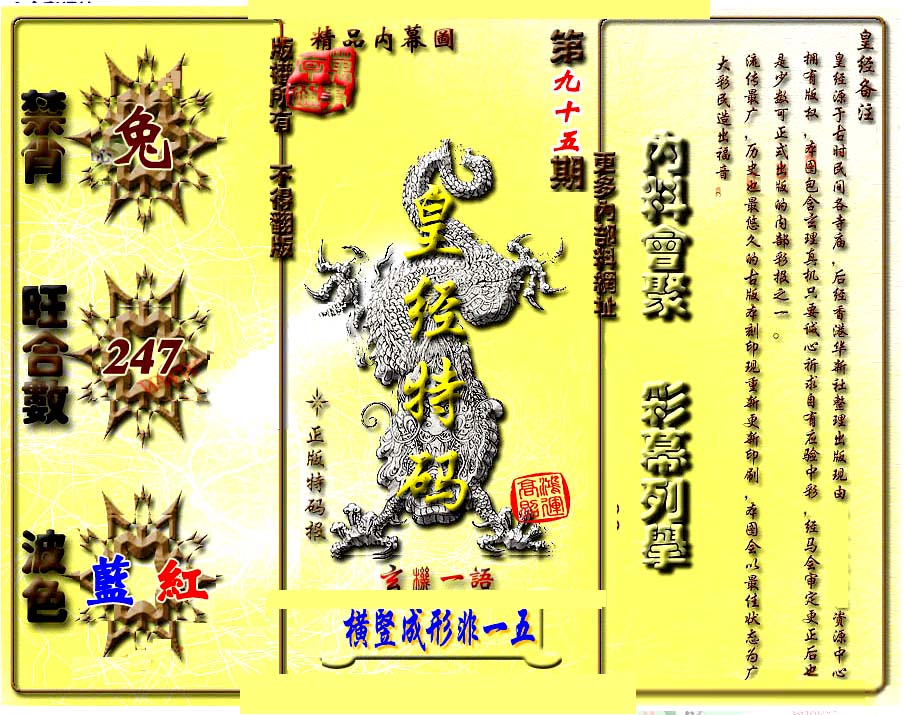 精品内幕圖
版權所有 不得翻版
第九十五期
更多內部料網址
禁肖
兔
旺合數
247
波色
藍 紅
皇经特码
正版特码报
鴻運高照
玄機一語
橫豎成形非一五
內料會聚
彩幕列舉
皇经备注
皇经源于古时民间各寺庙,后经香港华新社整理出版现由 资源中心
拥有版权,本图包含玄理真机只要诚心祈求自有应验中彩,经马会审定更正后也
是少数可正式出版的内部彩报之一。
流传最广,历史也最悠久的古版本刻印现重新更新印刷,本图会以最佳状态为广
大彩民造出福音